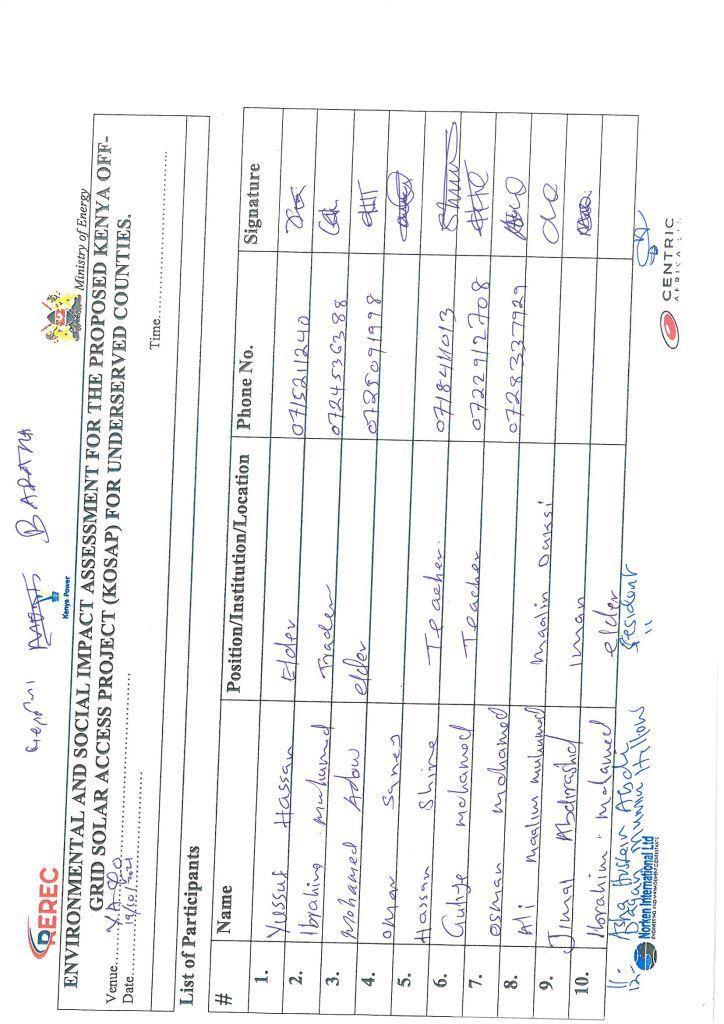 BARAMA
REREC
Kenya Power
Ministry of Energy
ENVIRONMENTAL AND SOCIAL IMPACT ASSESSMENT FOR THE PROPOSED KENYA OFF-
GRID SOLAR ACCESS PROJECT (KOSAP) FOR UNDERSERVED COUNTIES.
Venue
Date 19/10/2021
Time
List of Participants
# Name Position/Institution/Location Phone No. Signature
1. Yussuf Hassan Elder 0715211240
2. Ibrahim Muhumed Trader 0724536388
3. Mohamed Adow elder 0725091998
4. Omar Saney
5. Hassan Shire Teacher. 0718411013
6. Guliye mohamed Teacher 0722912708
7. Osman mohamed 0728337929
8. Ali maalim muhumed maalin Duksi
9. Jimal Abdirashid Iman
10. Ibrahim Mohamed elder
11- Hussein Abdi resident
12- Hillow "
Norken International Ltd
ENGINEERING AND MANAGEMENT CONSULTANTS
CENTRIC
AFRICA LTD